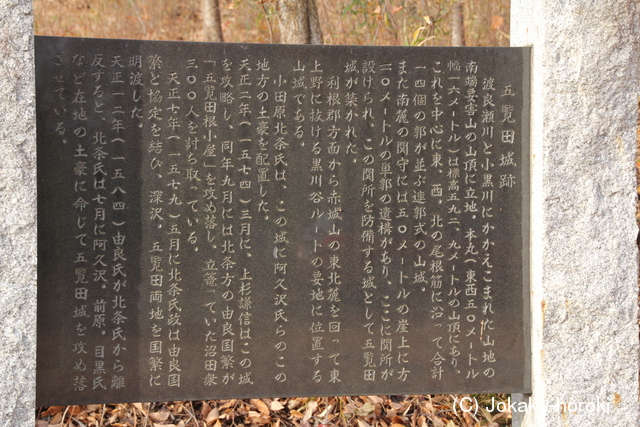 五覧田城跡
波良瀬川と小黒川にかかえこまれた山地の
南端要害山の山頂に立地。本丸(東西五〇メートル
幅一六メートル)は標高五九二.九メートルの山頂にあり、
これを中心に東、西、北の尾根筋に沿って合計
一四個の郭が並ぶ連郭式の山城。
また南麓の関守には五〇メートルの崖上に方
二〇メートルの単郭の遺構があり、ここに関所が
設けられ、この関所を防備する城として五覧田
城が築かれた。
利根郡方面から赤城山の東北麓を回って東
上野に抜ける黒川谷ルートの要地に位置する
山城である。
小田原北条氏は、この城に阿久沢氏らのこの
地方の土豪を配置した。
天正二年(一五七四)三月に、上杉謙信はこの城
を攻略し、同年九月には北条方の由良国繁が
「五覧田根小屋」を攻め落し、立竜っていた沼田衆
三〇〇人を討ち取っている。
天正七年(一五七九)五月に北条氏政は由良国
繁と協定を結び、深沢、五覧田両地を国繁に
明渡した。
天正一二年(一五八四)由良氏が北条氏から離
反すると、北条氏は七月に阿久沢、前原、目黒氏
など在地の土豪に命して五覧田城を攻め落
させている。
(C) Jokaku-horoki